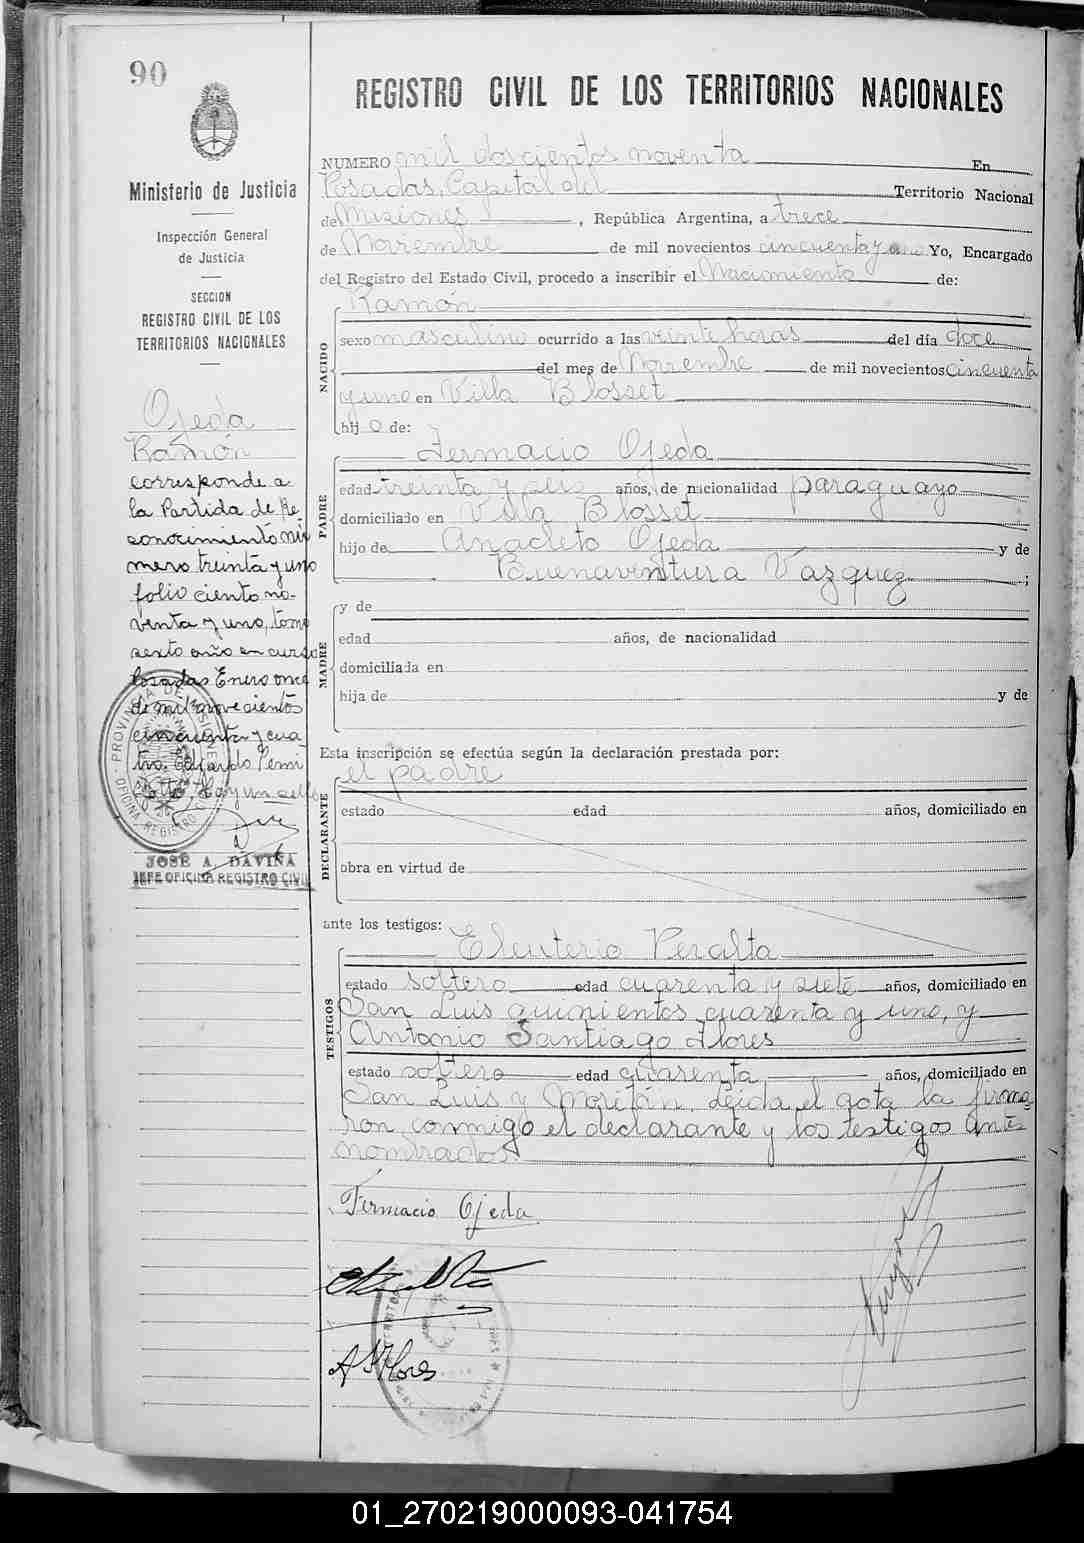 90
Ministerio de Justicia
Inspección General
de Justicia
SECCION
REGISTRO CIVIL DE LOS
TERRITORIOS NACIONALES
Ojeda
Ramón
corresponde a
la Partida de Re-
conocimiento nú
mero treinta y uno
folio ciento no-
venta y uno, tomo
sexto año en curso
Posadas Enero once
de mil novecientos
cincuenta y cua-
tro.
Hay un sello
PROVINCIA DE MISIONES
OFICINA REGISTRO CIVIL
JOSÉ A. DAVIÑA
JEFE OFICINA REGISTRO CIVIL
REGISTRO CIVIL DE LOS TERRITORIOS NACIONALES
NUMERO mil doscientos noventa En
Posadas, Capital del Territorio Nacional
de Misiones, República Argentina, a trece
de Noviembre de mil novecientos cincuenta y uno Yo, Encargado
del Registro del Estado Civil, procedo a inscribir el Nacimiento de:
NACIDO
Ramón
sexo masculino ocurrido a las veinte horas del día doce
del mes de Noviembre de mil novecientos cincuenta
y uno en Villa Blosset
hijo de:
PADRE
Fermacio Ojeda
edad treinta y seis años, de nacionalidad paraguayo
domiciliado en Villa Blosset
hijo de Anacleto Ojeda y de
Buenaventura Vazquez;
MADRE
y de
edad años, de nacionalidad
domiciliada en
hija de y de
Esta inscripción se efectúa según la declaración prestada por:
DECLARANTE
el padre
estado edad años, domiciliado en
obra en virtud de
ante los testigos:
TESTIGOS
Eleuterio Peralta
estado soltero edad cuarenta y siete años, domiciliado en
San Luis quinientos cuarenta y uno, y
Antonio Santiago Flores
estado soltero edad cuarenta años, domiciliado en
San Luis y Moritán. Leída el acta la firma
ron conmigo el declarante y los testigos ante
nombrados.
Fermacio Ojeda
A S Flores
01_270219000093-041754